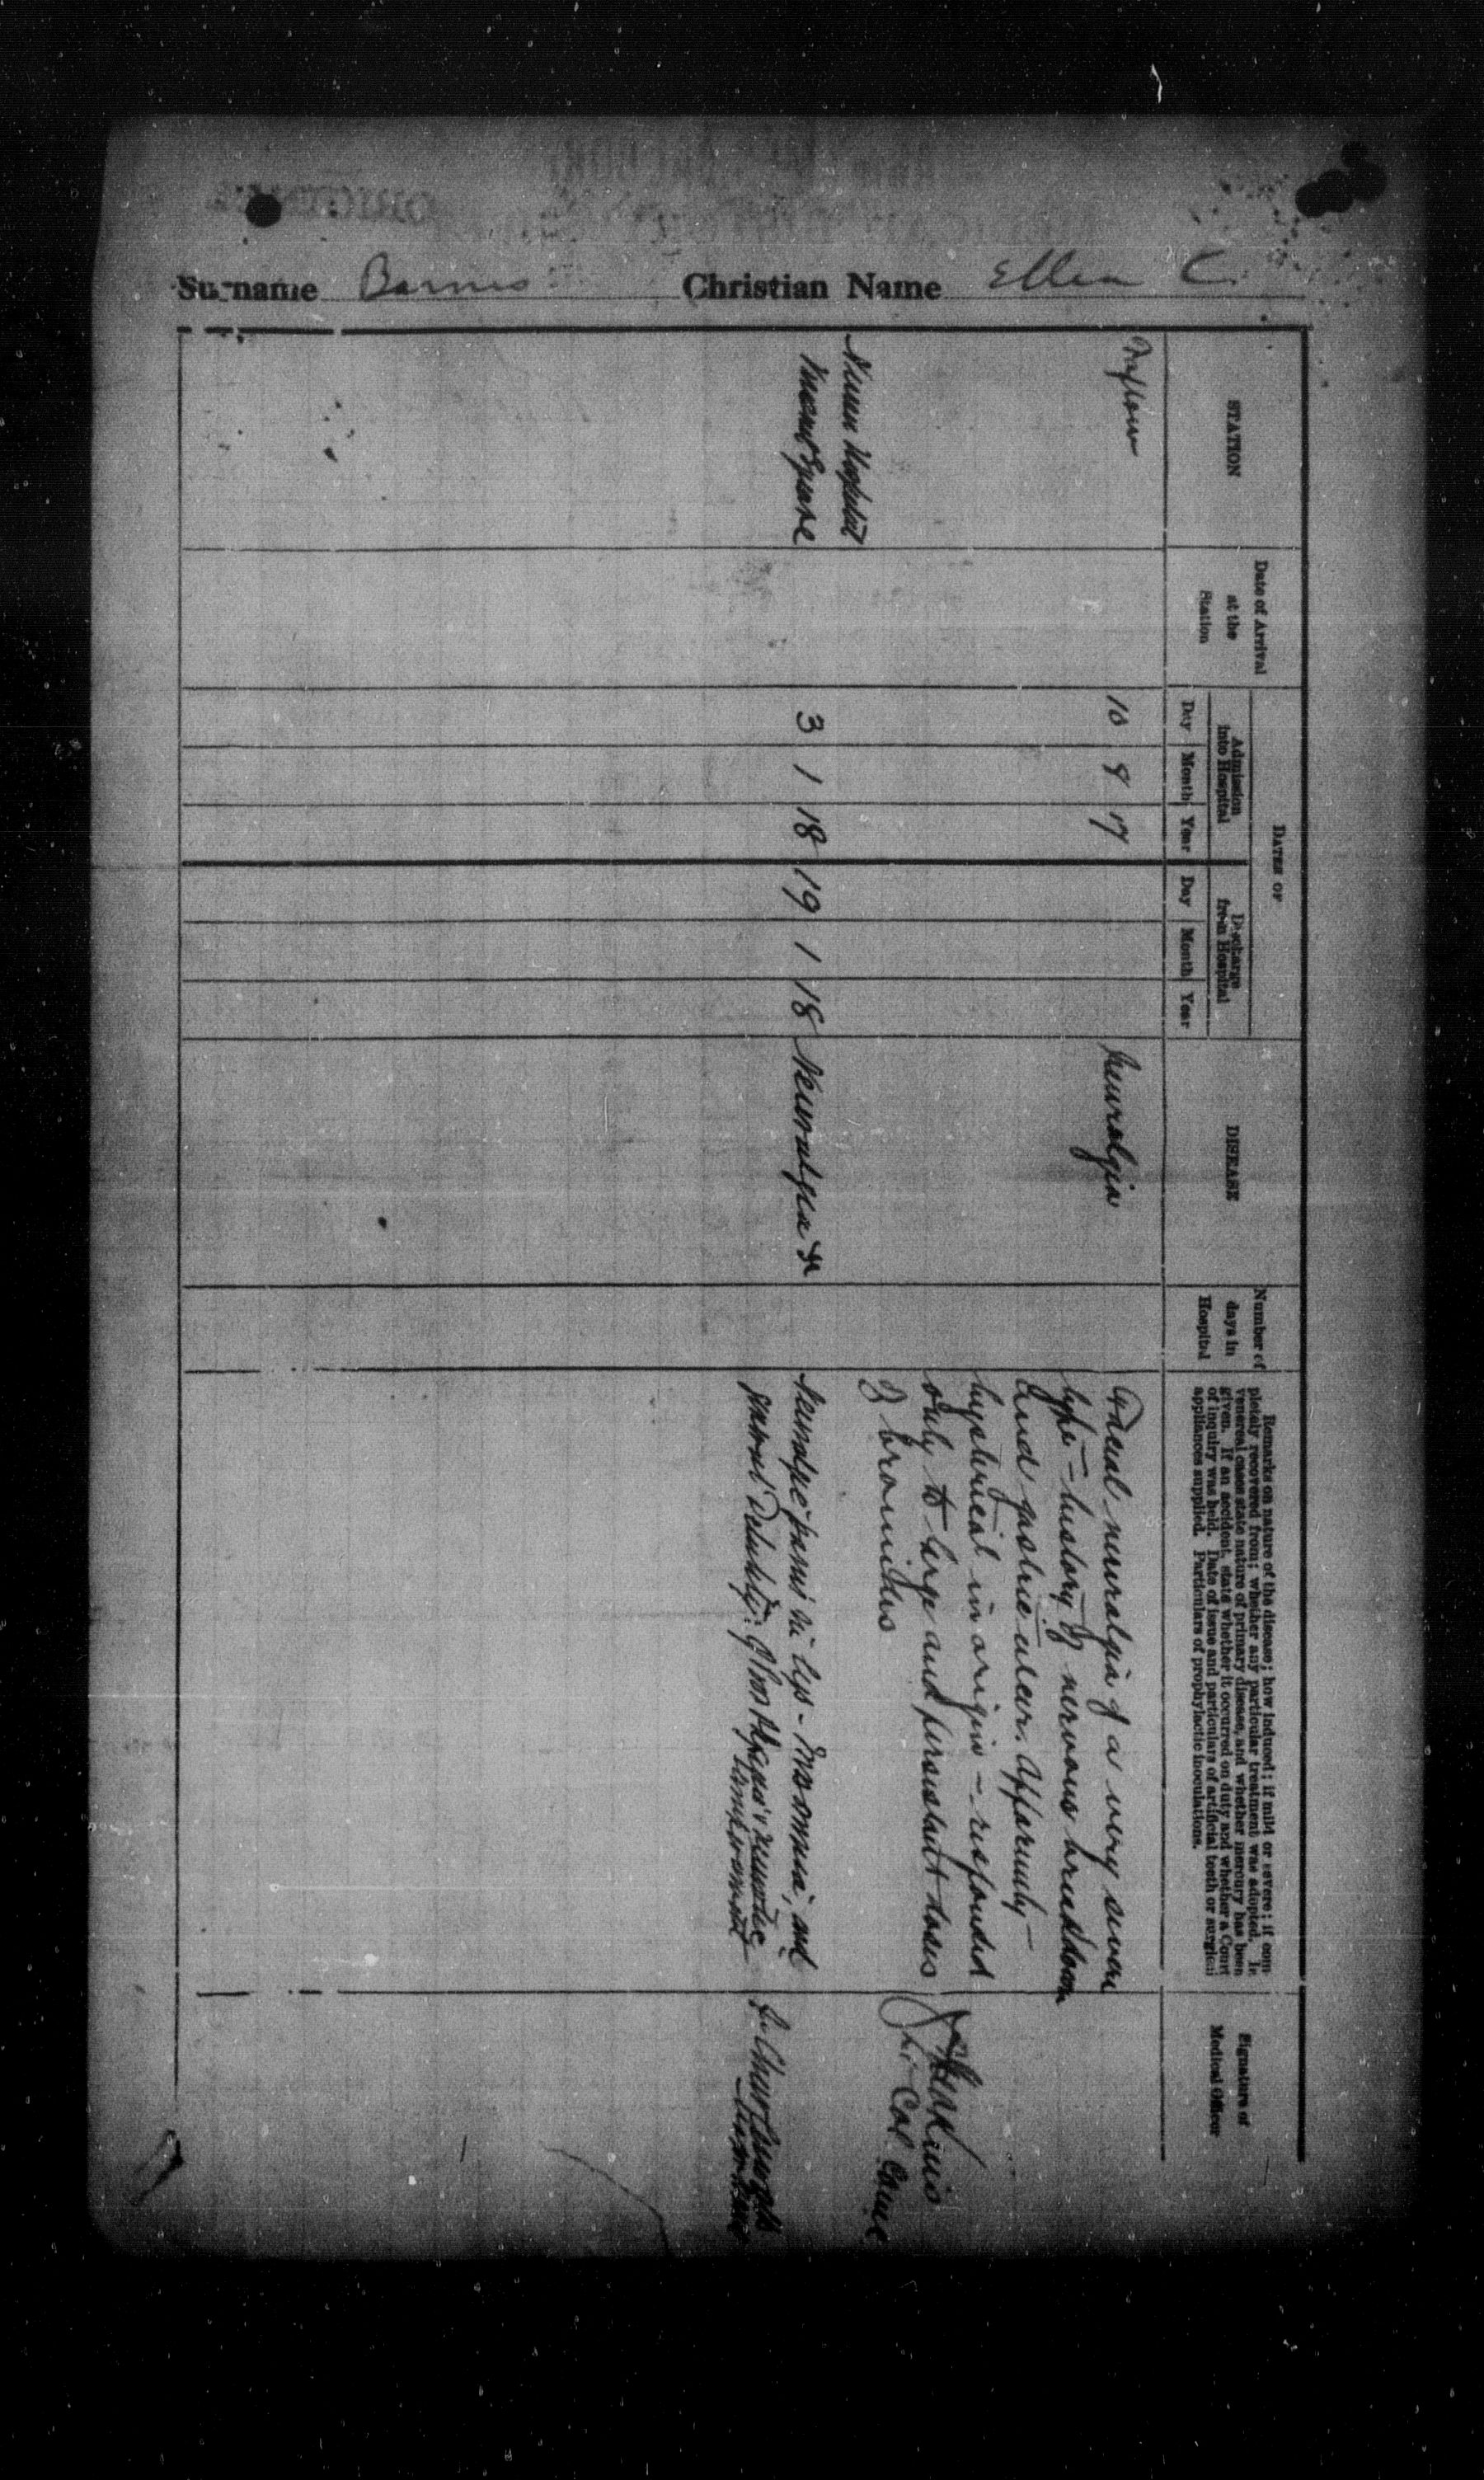 Surname Barnes Christian Name Ellen C.
STATION
Date of Arrival
at the
Station
DATES OF
Admission
into Hospital
Discharge
from Hospital
Day Month Year Day Month Year
DISEASE
Number of
days in
Hospital
Remarks on nature of the disease; how induced; if mild or severe; if com-
pletely recovered from; whether any particular treatment was adopted. In
venereal cases state nature of primary disease, and whether mercury has been
given. If an accident, state whether it occurred on duty and whether a Court
of inquiry was held. Date of issue and particulars of artificial teeth or surgical
appliances supplied. Particulars of prophylactic inoculations.
Signature of
Medical Officer
Taplow 10 8 17 Neuralgia Facial neuralgia of a very severe
type - history of nervous breakdown
and gastric ulcer. Apparently
hysterical in origin - responded
only to large and persistent doses
of bromides
Lt Col CAMC
Hospital
Square 3 1 18 19 1 18 Neuralgia
Neuralgic pains in legs - Insomnia, and
general Debility.
temperament